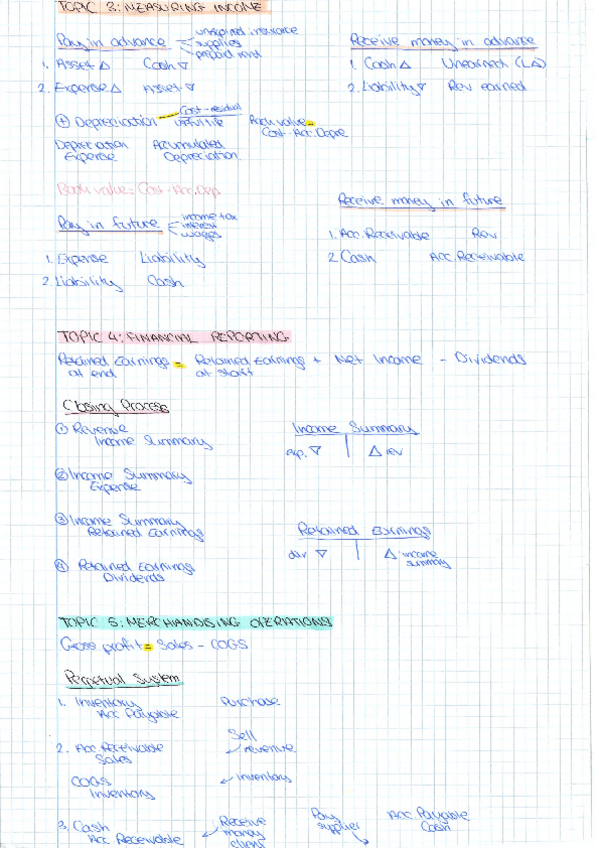 TOPIC 3: MEASURING INCOME
Pay in advance
unexpired insurance
supplies
prepaid rent
1. Asset △ Cash ▽
2. Expense △ Asset ▽
Receive money in advance
1. Cash △ Unearned (L△)
2. Liability ▽ Rev earned
+ Depreciation
Cost - residual
useful life
Book value =
Cost - Acc. Depre.
Depreciation Accumulated
Expense Depreciation
Book value = Cost - Acc. Dep.
Pay in future
income tax
interest
wages
1. Expense Liability
2. Liability Cash
Receive money in future
1. Acc. Receivable Rev
2. Cash Acc. Receivable
TOPIC 4: FINANCIAL REPORTING
Retained Earnings = Retained Earnings + Net Income - Dividends
at end at start
Closing Process
① Revenue
Income Summary
② Income Summary
Expense
③ Income Summary
Retained Earnings
④ Retained Earnings
Dividends
Income Summary
exp. ▽ △ rev
Retained Earnings
div ▽ △ income
summary
TOPIC 5: MERCHANDISING OPERATIONS
Gross profit = Sales - COGS
Perpetual System
1. Inventory Purchase
Acc Payable
2. Acc Receivable
Sales
Sell
revenue
COGS
Inventory
inventory
3. Cash
Acc Receivable
Receive
money
client
Pay
supplier
Acc Payable
Cash